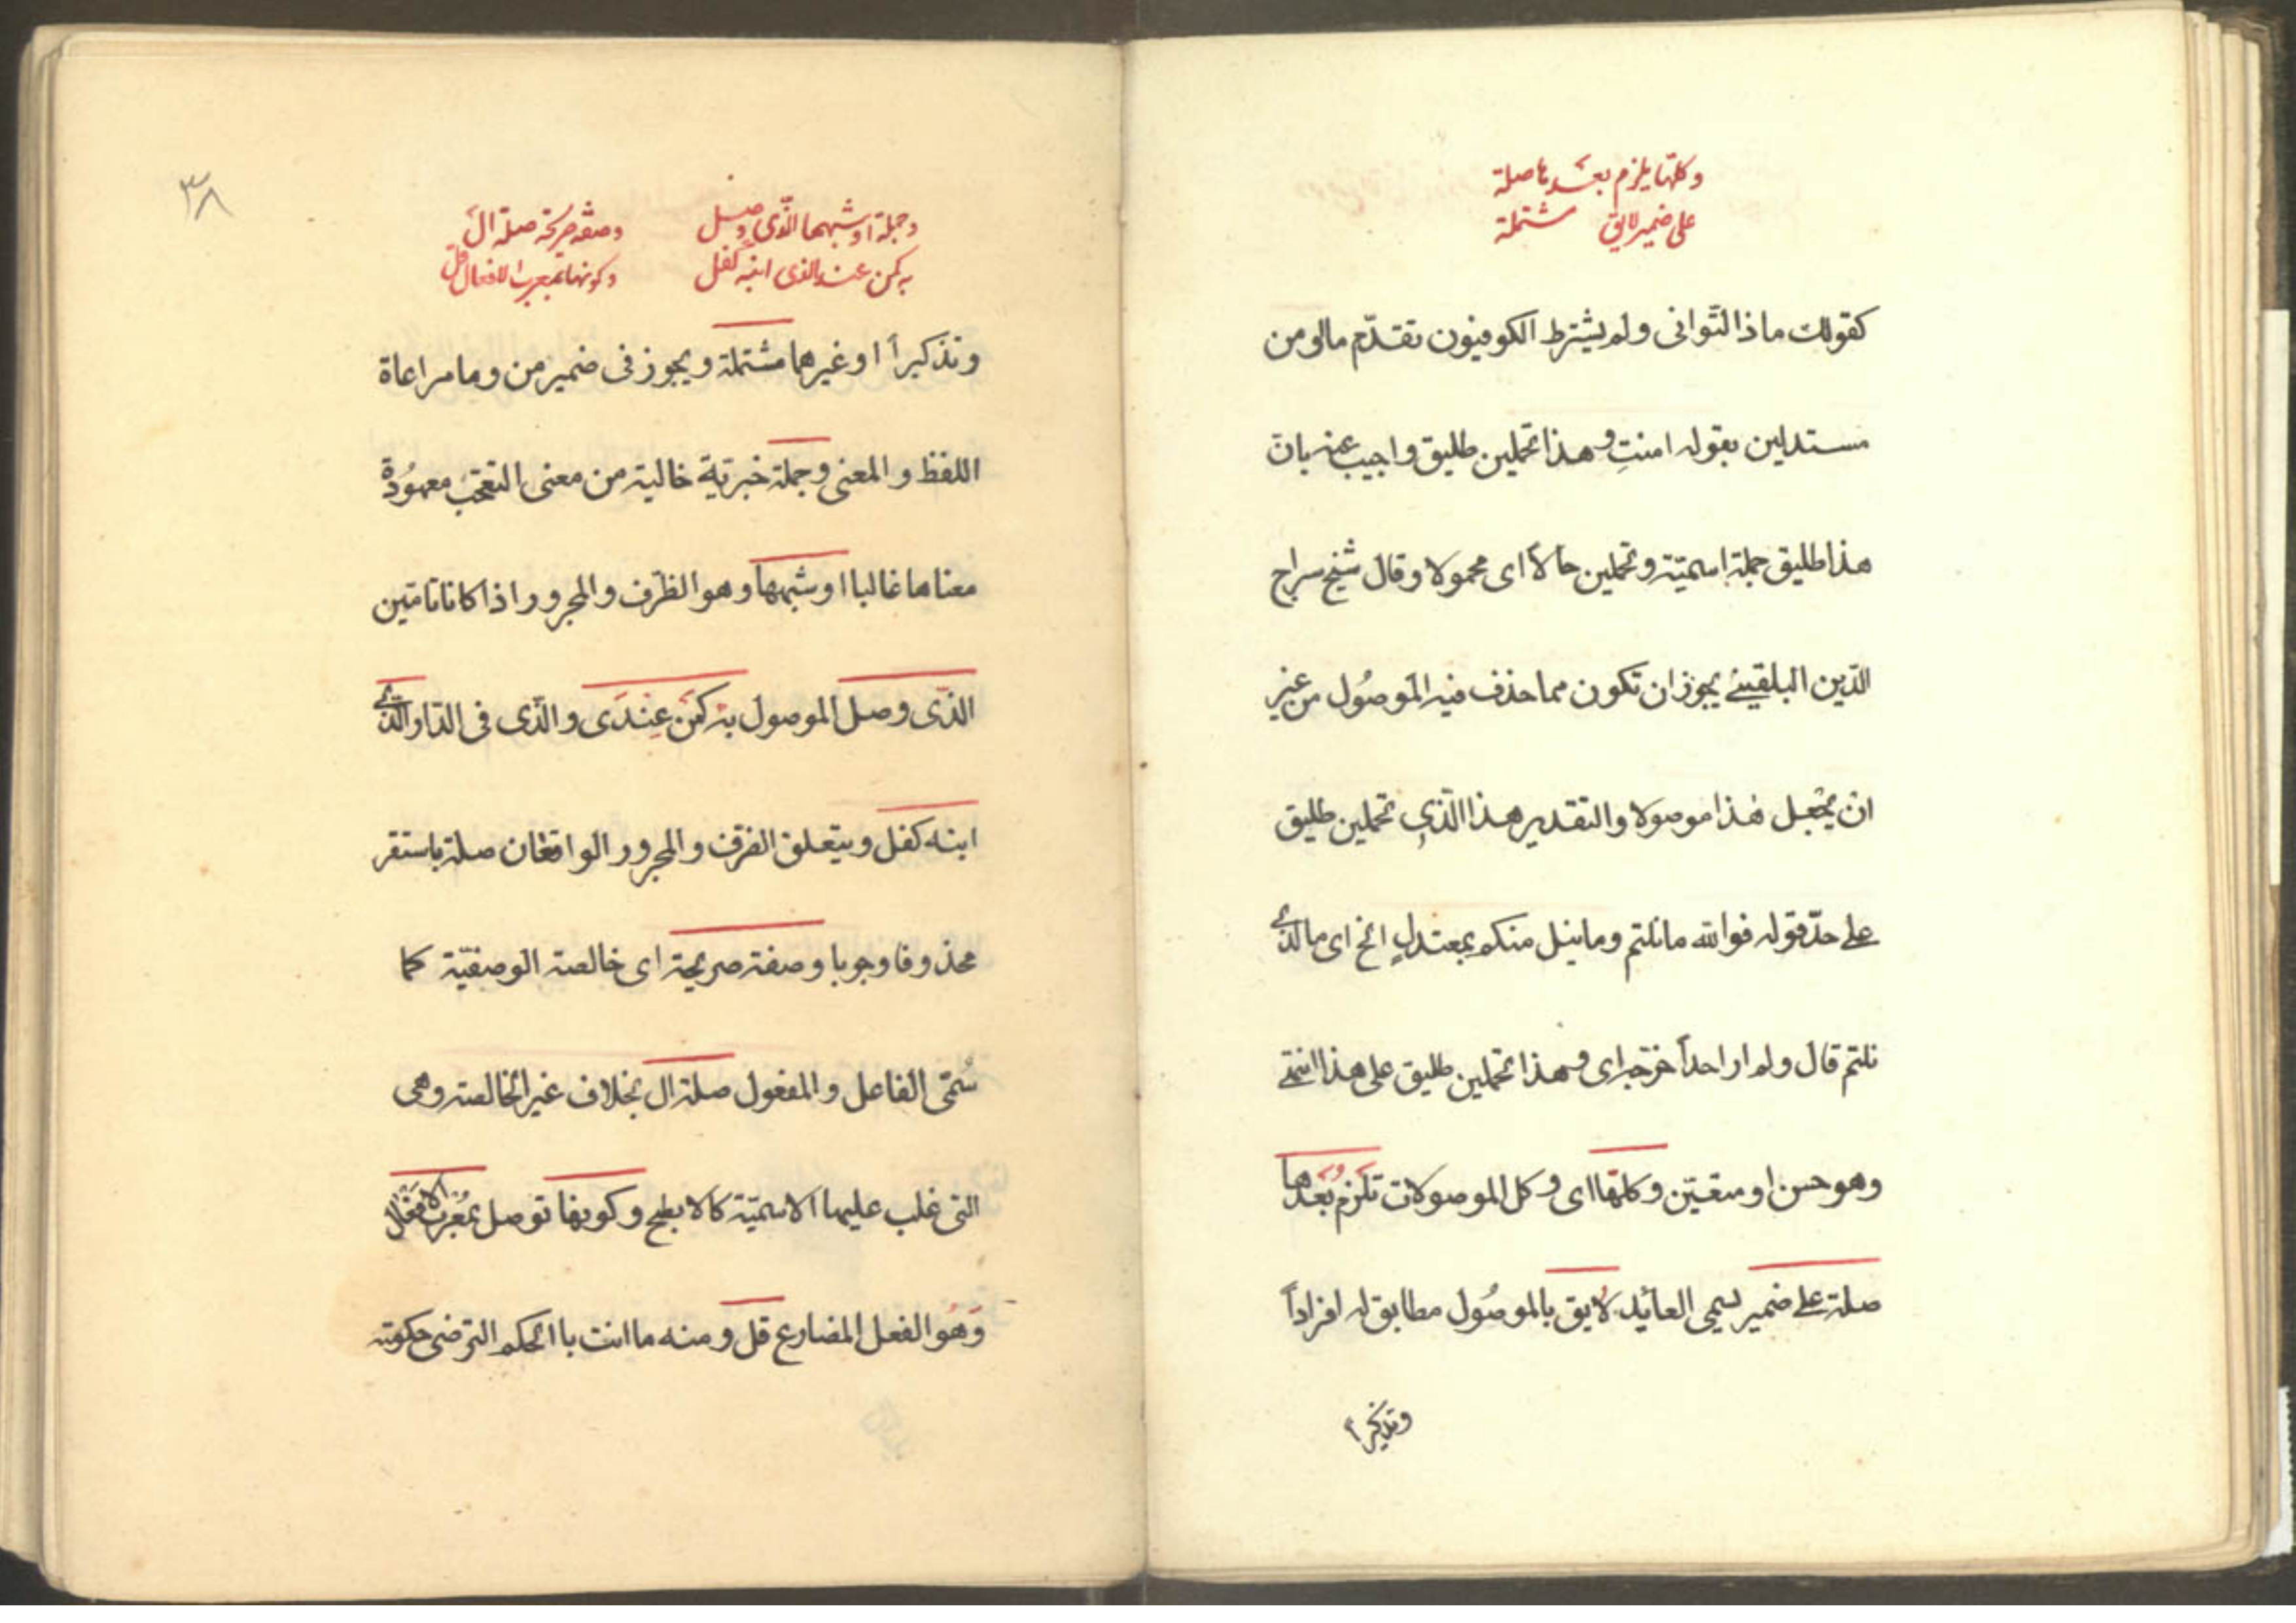 وكلها يلزم بعدها صلة
على ضمير لايق مشتملة
كقولك ماذا لتوانى ولم يشترط الكوفيون تقدّم ما او من
مستدلين بقوله امنتِ وهذا تحملين طليق واجيب عنه بان
هذا طليق جملة اسميّة وتحملين حالاً اى محمولا وقال شيخ سراج
الدّين البلقينے يجوز ان تكون مما حذف فيه الموصُول من غير
ان يجعل هذا موصولا والتقدير هذا الّذى تحملين طليق
على حدّ قوله فوالله ما نلتم وما نيل منكم بمعتدلٍ الخ اى ما الّذے
نلتم قال ولم ار احداً خرّجه اى وهذا تحملين طليق على هذا انتهے
وهو حسن او متعيّن وكلهّا اى وكل الموصولات تلزم بُعدها
صلة على ضمير يسمى العائيد لايق بالموصُول مطابق له افراداً
وتذكيراً
٣٨
وجملة او شبهها الّذى وصل
به كمن عندى الذى ابنه كفل
وصفه صريحة صلة ال
وكونها بمعرب الافعال قل
وتذكيراً او غيرهما مشتملة ويجوز فى ضمير من وما مراعاة
اللفظ والمعنى وجملة خبريّة خالية من معنى التعجّب معهوُدة
معناها غالبا او شبهها وهو الظرف والمجرور اذا كانا تامّين
الذّى وصل الموصول به كمن عِندَى والّذى فى الدّار والّذے
ابنه كفل ويتعلق الظرف والمجرور الواقعان صلة باستقر
محذوفا وجوبا وصفة صريحة اى خالصة الوصفيّة كما
سُمّى الفاعل والمفعول صلة ال بخلاف غير الخالصة وهى
التى غلب عليها الاسميّة كالابطح وكونها توصل بمُعرب الافعال
وَهُو الفعل المضارع قل ومنه ما انت باالحكم الترضى حكومته